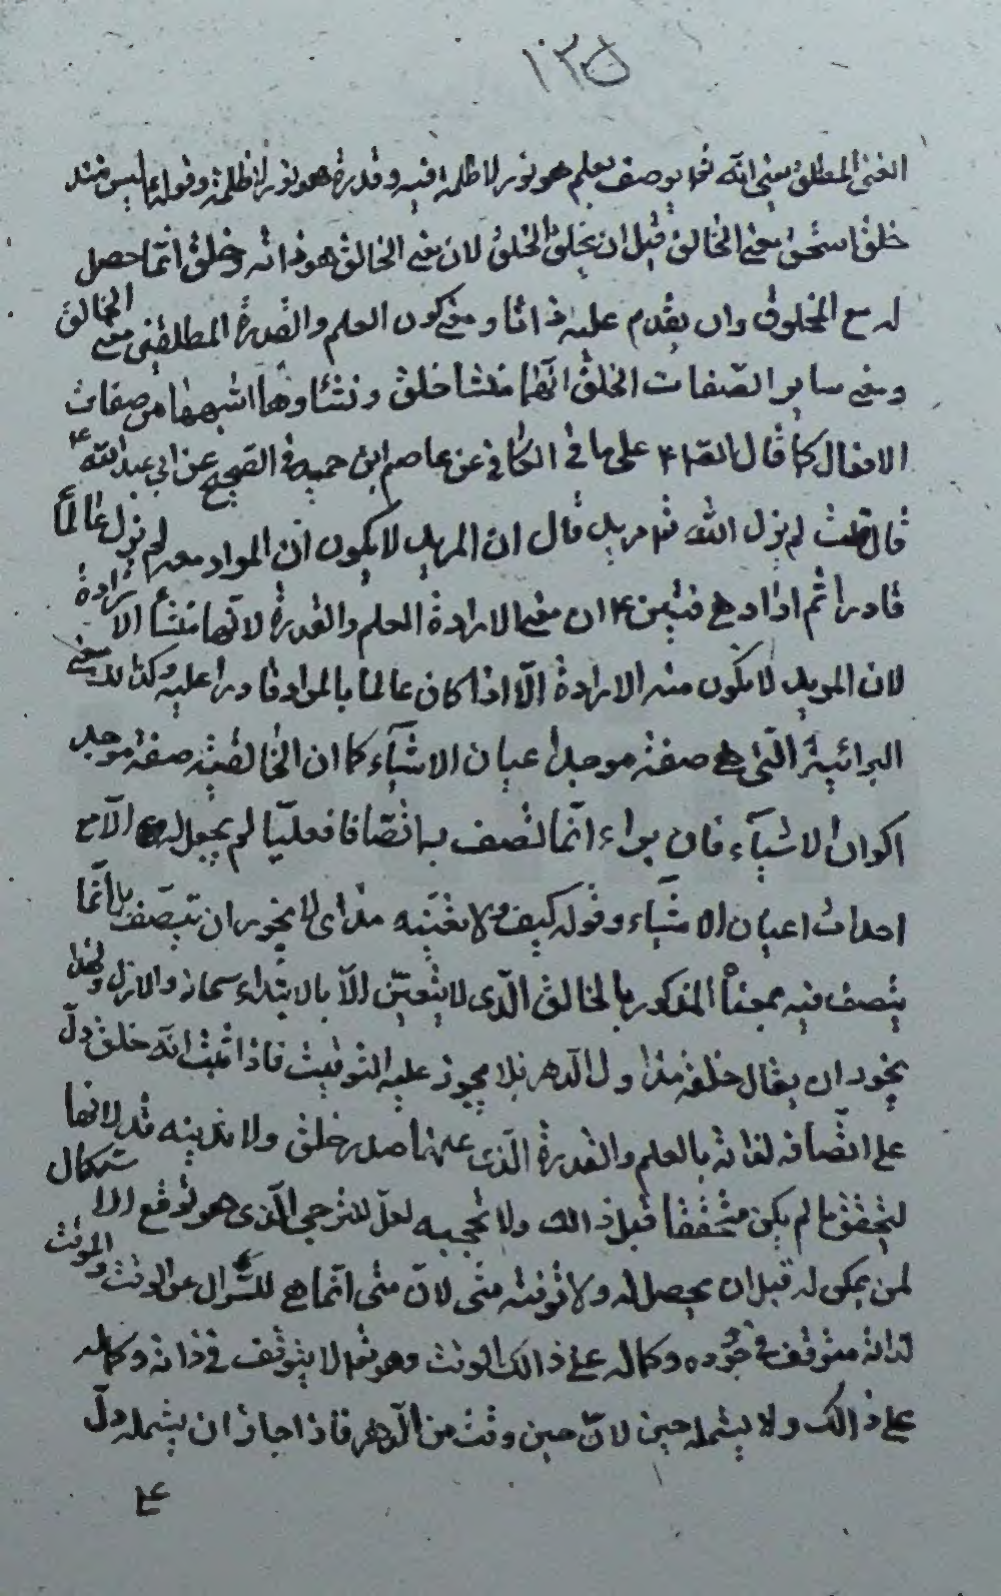 ١٠٣٥
الغنى المطلق يعنى الله تعالى يوصف بعلم هو نور لا ظلمة فيه وقدرة هو نور لا ظلمة وقوله ليس منذ
خلق استحق معنى الخالق قبل ان يخلق الخلق لان معنى الخالق هو ذاته وخلق انما حصل
له مع المخلوق وان تقدم عليه ذاتا ومعنى كون العلم والقدرة المطلقتى معنى الخالق
ومعنى ساير الصفات الخلق انهما منشا خلق ونشاوهما اشبههما من صفات
الافعال كما قال الص٤ على ما فى الكافى عن عاصم ابن حميد فى الصحيح عن ابى عبد الله ٤
قال قلت لم يزل الله تعالى مريد قال ان المريد لا يكون ان المراد معه لم يزل عالمًا
قادرا ثم اراد هى فتبين ٤ ان معنى الارادة العلم والقدرة لانهما منشأ الارادة
لان المريد لا يكون منه الارادة الّا اذا كان عالما بالمراد قادرا عليه وكذالك معنى
البرائية الّتى هى صفة موجد اعيان الاشيآء كما ان الخالقية صفة موجد
اكوان الاشيآء فان براء انما لتصف به اتصافا فعليّا لم يجعل له الّا مع
احداث اعيان الاشيآء وقوله كيف ولا تغيّبه مذ اى لا يجوز ان تتصف بانما
يتصف فيه بمعنا المذكور بالخالق الّذى لا يتعيّن الّا بالابتداء سماذ والازل ولهذا
يجوز ان يقال خلقه مذ اول الدهر بلا يجوز عليه التوقيت فاذا ثبت انه خلق دلّ
على اتصافه لذاته بالعلم والقدرة الّذى عنهما صدر خلق ولا تدينه قد لانها
لتحقق ما لم يكن متحققا قبل ذالك ولا تحجبه لعلّ للترجى الّذى هو توقع الاستكمال
لمن يمكن له قبل ان يحصل له ولا توقته متى لانّ متى انما هى للسّوال عن الوقت والموقت
لذاته متوقف فى جوده وكماله على ذالك الوقت وهو تعالى لا يتوقف فى ذاته وكماله
على ذالك ولا يشمله حين لانّ حين وقت من الدّهر فاذا جاز ان يشمله دلّ